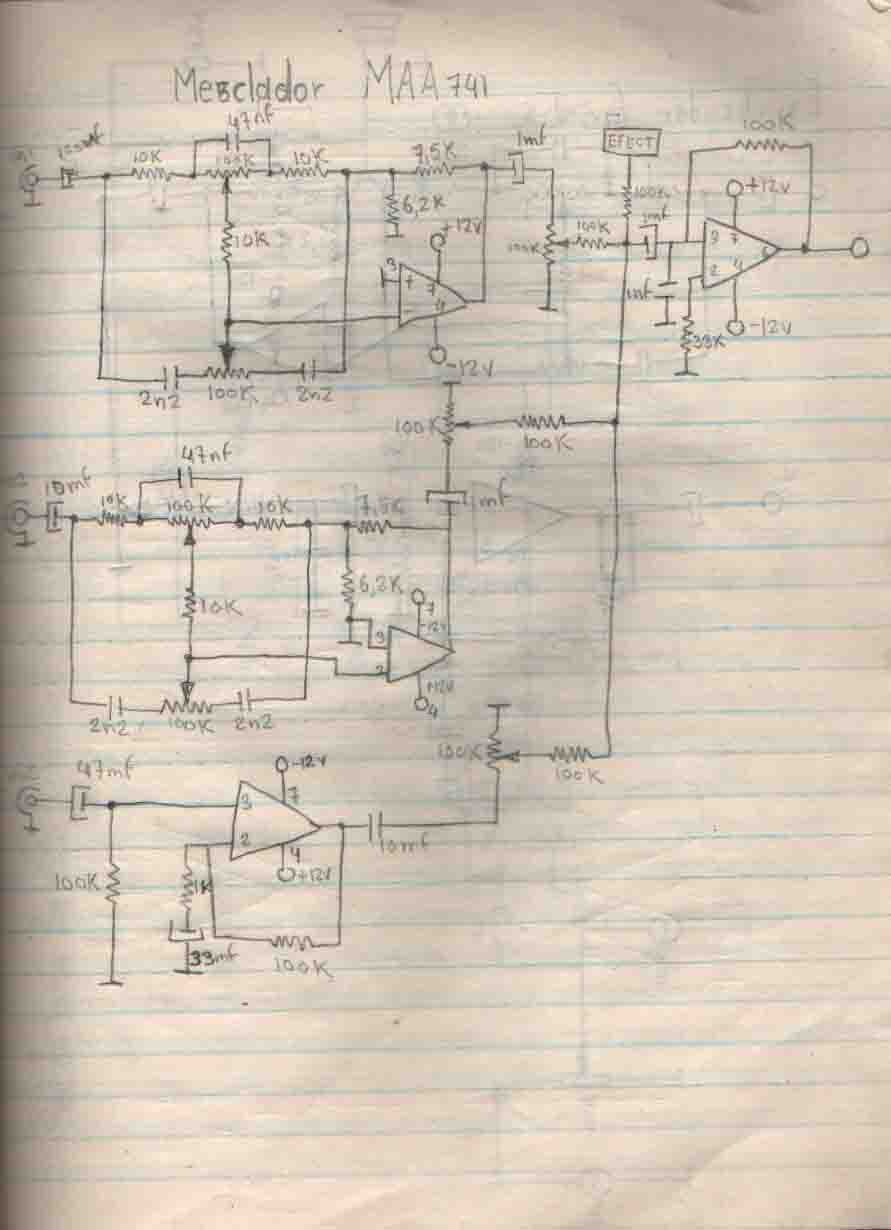 Mesclador MAA 741
47nf
10K 100K 10K 7,5K 1mf
EFECT
100K
100K
6,2K
+12V
+12V
10K
100K
100K
1mf
3
7
4
3
7
2
4
6
1nf
33K
-12V
-12V
2n2 100K 2n2
100K
100K
47nf
10mf
10K 100K 10K 7,5K
1mf
6,2K
10K
7
-12V
3
2
+12V
4
2n2 100K 2n2
100K
100K
47mf
-12V
7
3
2
4
+12V
10mf
100K
1K
33mf
100K